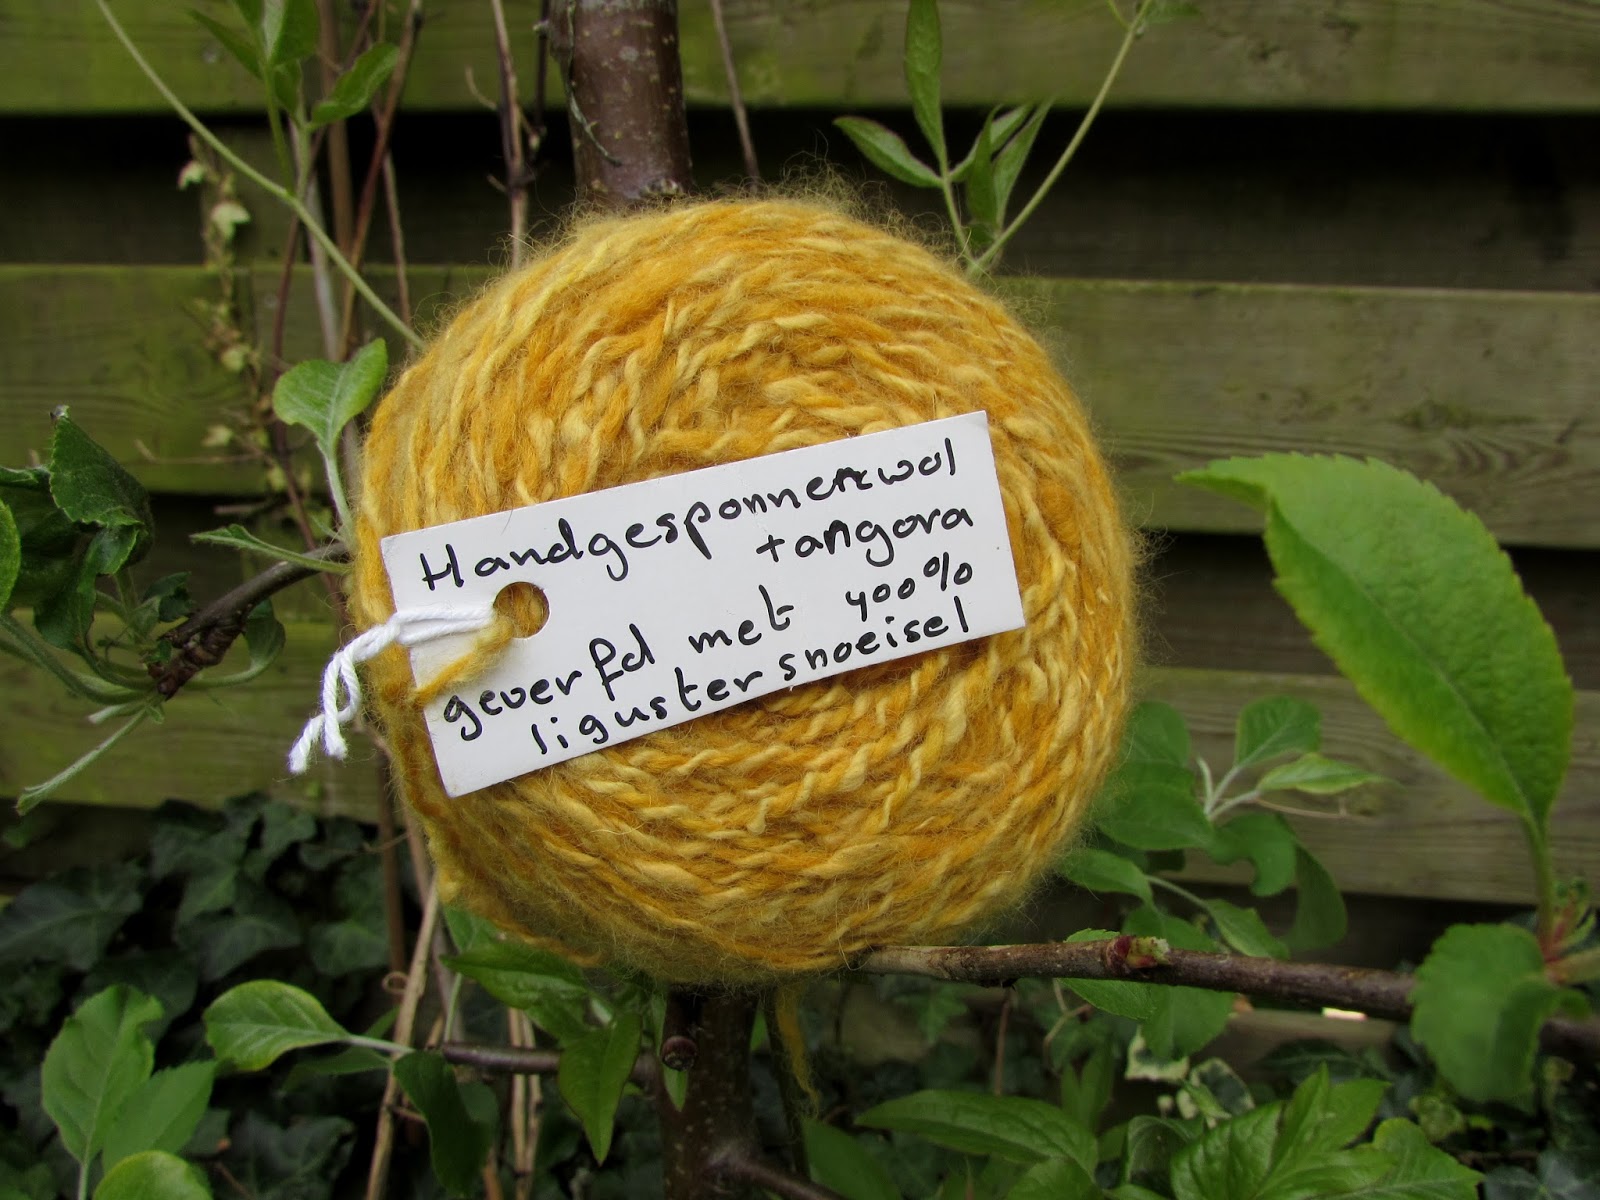 Handgesponnen wol
+ angora
geverfd met 400%
ligustersnoeisel